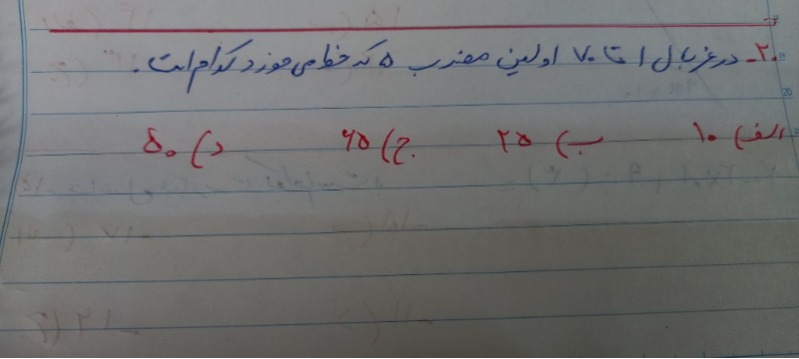 ۲۰- در غربال ۱ تا ۷۰ اولین مضرب ۵ که خط می خورد کدام است.
الف) ۱۰ ب) ۲۵ ج) ۶۵ د) ۵۰